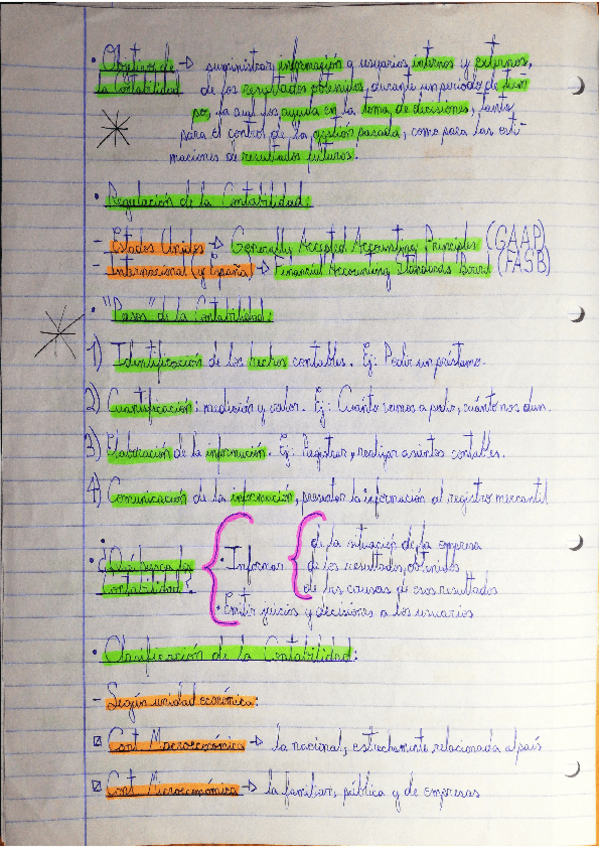 · Objetivo de → suministrar información a usuarios internos y externos,
la Contabilidad de los resultados obtenidos, durante un periodo de tiem-
po, la cual los ayuda en la toma de decisiones, tanto
para el control de la gestión pasada, como para las esti-
maciones de resultados futuros.
· Regulación de la Contabilidad:
- Estados Unidos → Generally Accepted Accounting Principles (GAAP)
- Internacional (y España) → Financial Accounting Standards Board (FASB)
· "Pasos" de la Contabilidad:
1) Identificación de los hechos contables. Ej: Pedir un préstamo.
2) Cuantificación: medición y valor. Ej: Cuánto vamos a pedir, cuánto nos dan.
3) Elaboración de la información. Ej: Registrar, realizar asientos contables.
4) Comunicación de la información, presentar la información al registro mercantil
· ¿Qué busca la contabilidad?
· Informar
de la situación de la empresa
de los resultados obtenidos
de las causas de esos resultados
· Emitir juicios y decisiones a los usuarios
· Clasificación de la Contabilidad:
- Según unidad económica:
Cont. Macroeconómica → la nacional, estrechamente relacionada al país
Cont. Microeconómica → la familiar, pública y de empresas